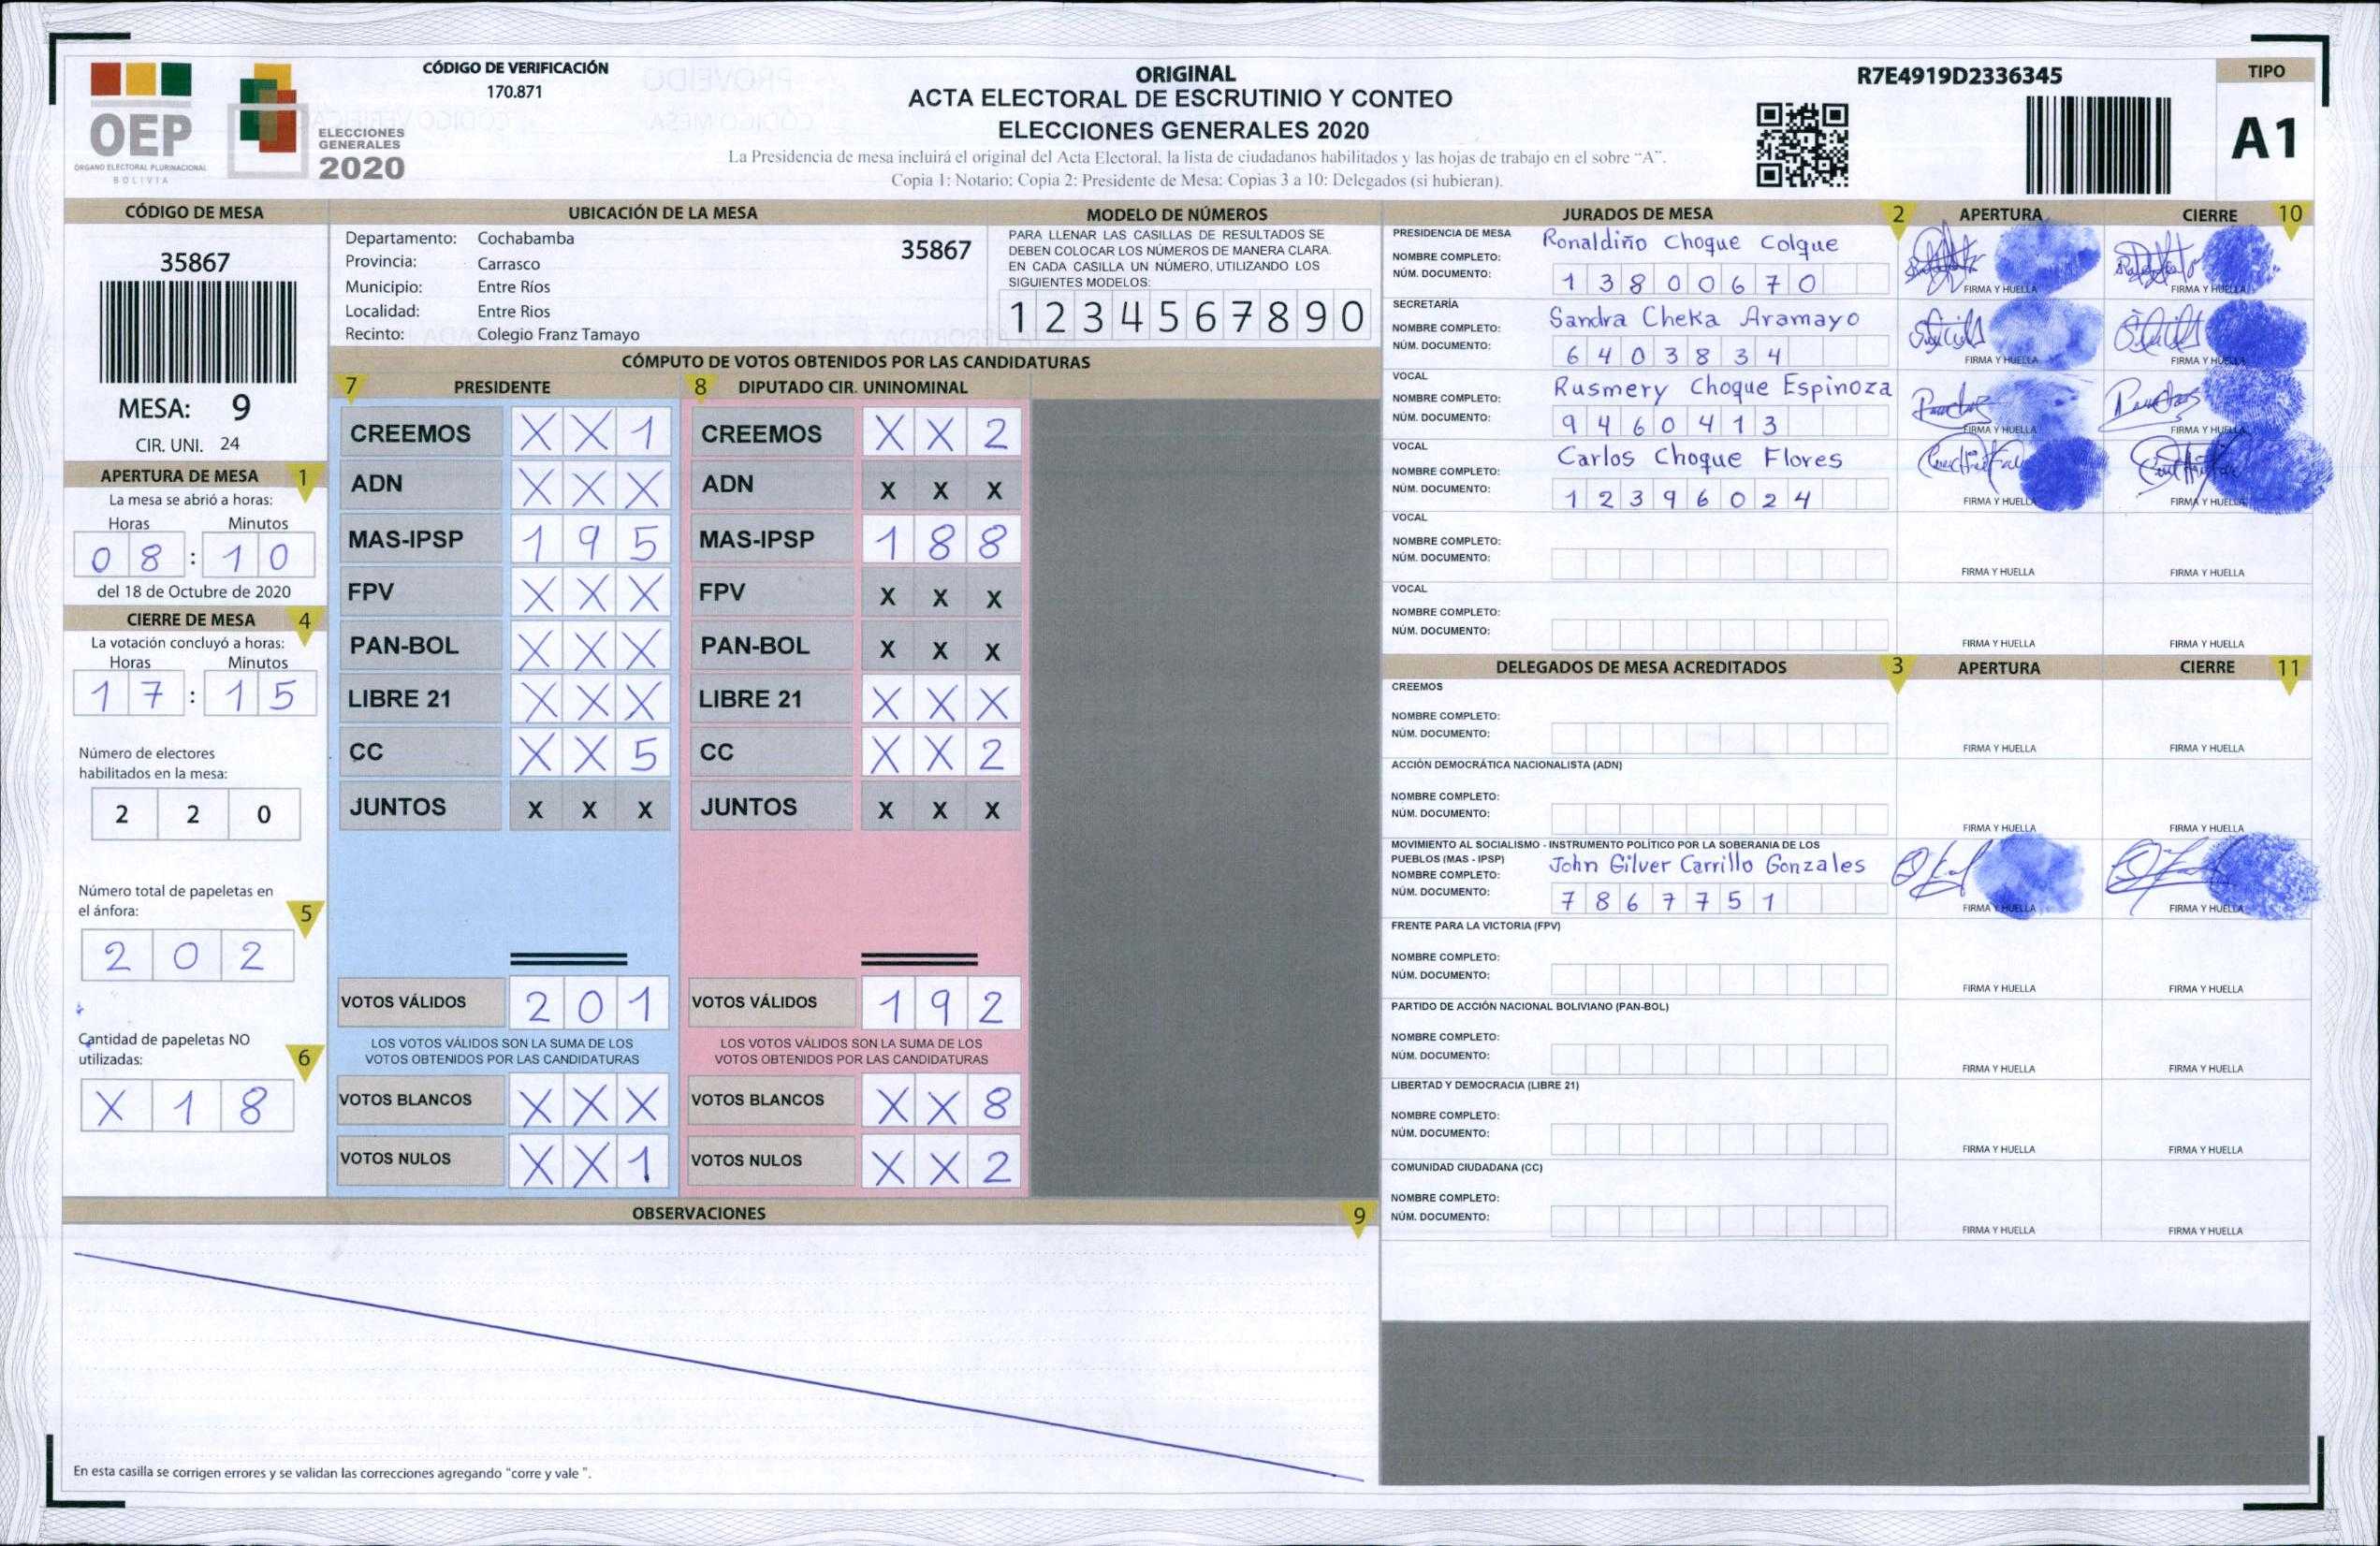 OEP
ÓRGANO ELECTORAL PLURINACIONAL
BOLIVIA
ELECCIONES
GENERALES
2020
CÓDIGO DE VERIFICACIÓN
170.871
ORIGINAL
ACTA ELECTORAL DE ESCRUTINIO Y CONTEO
ELECCIONES GENERALES 2020
La Presidencia de mesa incluirá el original del Acta Electoral, la lista de ciudadanos habilitados y las hojas de trabajo en el sobre "A".
Copia 1: Notario; Copia 2: Presidente de Mesa; Copias 3 a 10: Delegados (si hubieran).
R7E4919D2336345
TIPO
A1
CÓDIGO DE MESA
35867
MESA: 9
CIR. UNI. 24
APERTURA DE MESA 1
La mesa se abrió a horas:
Horas Minutos
0 8 : 1 0
del 18 de Octubre de 2020
CIERRE DE MESA 4
La votación concluyó a horas:
Horas Minutos
1 7 : 1 5
Número de electores
habilitados en la mesa:
2 2 0
Número total de papeletas en
el ánfora: 5
2 0 2
Cantidad de papeletas NO
utilizadas: 6
X 1 8
UBICACIÓN DE LA MESA
Departamento: Cochabamba 35867
Provincia: Carrasco
Municipio: Entre Ríos
Localidad: Entre Rios
Recinto: Colegio Franz Tamayo
MODELO DE NÚMEROS
PARA LLENAR LAS CASILLAS DE RESULTADOS SE
DEBEN COLOCAR LOS NÚMEROS DE MANERA CLARA.
EN CADA CASILLA UN NÚMERO, UTILIZANDO LOS
SIGUIENTES MODELOS:
1 2 3 4 5 6 7 8 9 0
CÓMPUTO DE VOTOS OBTENIDOS POR LAS CANDIDATURAS
7 PRESIDENTE 8 DIPUTADO CIR. UNINOMINAL
CREEMOS X X 1 CREEMOS X X 2
ADN X X X ADN X X X
MAS-IPSP 1 9 5 MAS-IPSP 1 8 8
FPV X X X FPV X X X
PAN-BOL X X X PAN-BOL X X X
LIBRE 21 X X X LIBRE 21 X X X
CC X X 5 CC X X 2
JUNTOS X X X JUNTOS X X X
VOTOS VÁLIDOS 2 0 1 VOTOS VÁLIDOS 1 9 2
LOS VOTOS VÁLIDOS SON LA SUMA DE LOS LOS VOTOS VÁLIDOS SON LA SUMA DE LOS
VOTOS OBTENIDOS POR LAS CANDIDATURAS VOTOS OBTENIDOS POR LAS CANDIDATURAS
VOTOS BLANCOS X X X VOTOS BLANCOS X X 8
VOTOS NULOS X X 1 VOTOS NULOS X X 2
OBSERVACIONES 9
En esta casilla se corrigen errores y se validan las correcciones agregando "corre y vale ".
JURADOS DE MESA 2 APERTURA CIERRE 10
PRESIDENCIA DE MESA
NOMBRE COMPLETO: Ronaldiño Choque Colque
NÚM. DOCUMENTO: 1 3 8 0 0 6 7 0
FIRMA Y HUELLA FIRMA Y HUELLA
SECRETARÍA
NOMBRE COMPLETO: Sandra Cheka Aramayo
NÚM. DOCUMENTO: 6 4 0 3 8 3 4
FIRMA Y HUELLA FIRMA Y HUELLA
VOCAL
NOMBRE COMPLETO: Rusmery Choque Espinoza
NÚM. DOCUMENTO: 9 4 6 0 4 1 3
FIRMA Y HUELLA FIRMA Y HUELLA
VOCAL
NOMBRE COMPLETO: Carlos Choque Flores
NÚM. DOCUMENTO: 1 2 3 9 6 0 2 4
FIRMA Y HUELLA FIRMA Y HUELLA
VOCAL
NOMBRE COMPLETO:
NÚM. DOCUMENTO:
FIRMA Y HUELLA FIRMA Y HUELLA
VOCAL
NOMBRE COMPLETO:
NÚM. DOCUMENTO:
FIRMA Y HUELLA FIRMA Y HUELLA
DELEGADOS DE MESA ACREDITADOS 3 APERTURA CIERRE 11
CREEMOS
NOMBRE COMPLETO:
NÚM. DOCUMENTO:
FIRMA Y HUELLA FIRMA Y HUELLA
ACCIÓN DEMOCRÁTICA NACIONALISTA (ADN)
NOMBRE COMPLETO:
NÚM. DOCUMENTO:
FIRMA Y HUELLA FIRMA Y HUELLA
MOVIMIENTO AL SOCIALISMO - INSTRUMENTO POLÍTICO POR LA SOBERANIA DE LOS
PUEBLOS (MAS - IPSP)
NOMBRE COMPLETO: John Gilver Carrillo Gonzales
NÚM. DOCUMENTO: 7 8 6 7 7 5 1
FIRMA Y HUELLA FIRMA Y HUELLA
FRENTE PARA LA VICTORIA (FPV)
NOMBRE COMPLETO:
NÚM. DOCUMENTO:
FIRMA Y HUELLA FIRMA Y HUELLA
PARTIDO DE ACCIÓN NACIONAL BOLIVIANO (PAN-BOL)
NOMBRE COMPLETO:
NÚM. DOCUMENTO:
FIRMA Y HUELLA FIRMA Y HUELLA
LIBERTAD Y DEMOCRACIA (LIBRE 21)
NOMBRE COMPLETO:
NÚM. DOCUMENTO:
FIRMA Y HUELLA FIRMA Y HUELLA
COMUNIDAD CIUDADANA (CC)
NOMBRE COMPLETO:
NÚM. DOCUMENTO:
FIRMA Y HUELLA FIRMA Y HUELLA